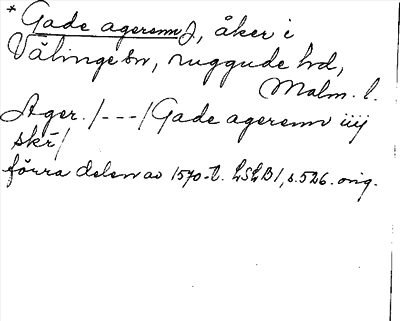 *Gade agerenn J, åker i
Välinge sn, ruggude hd,
Malm. l.
Ager. /---/ Gade agerenn iiij
skr/
förra delen av 1570-t. LSLB1, s. 526. orig.